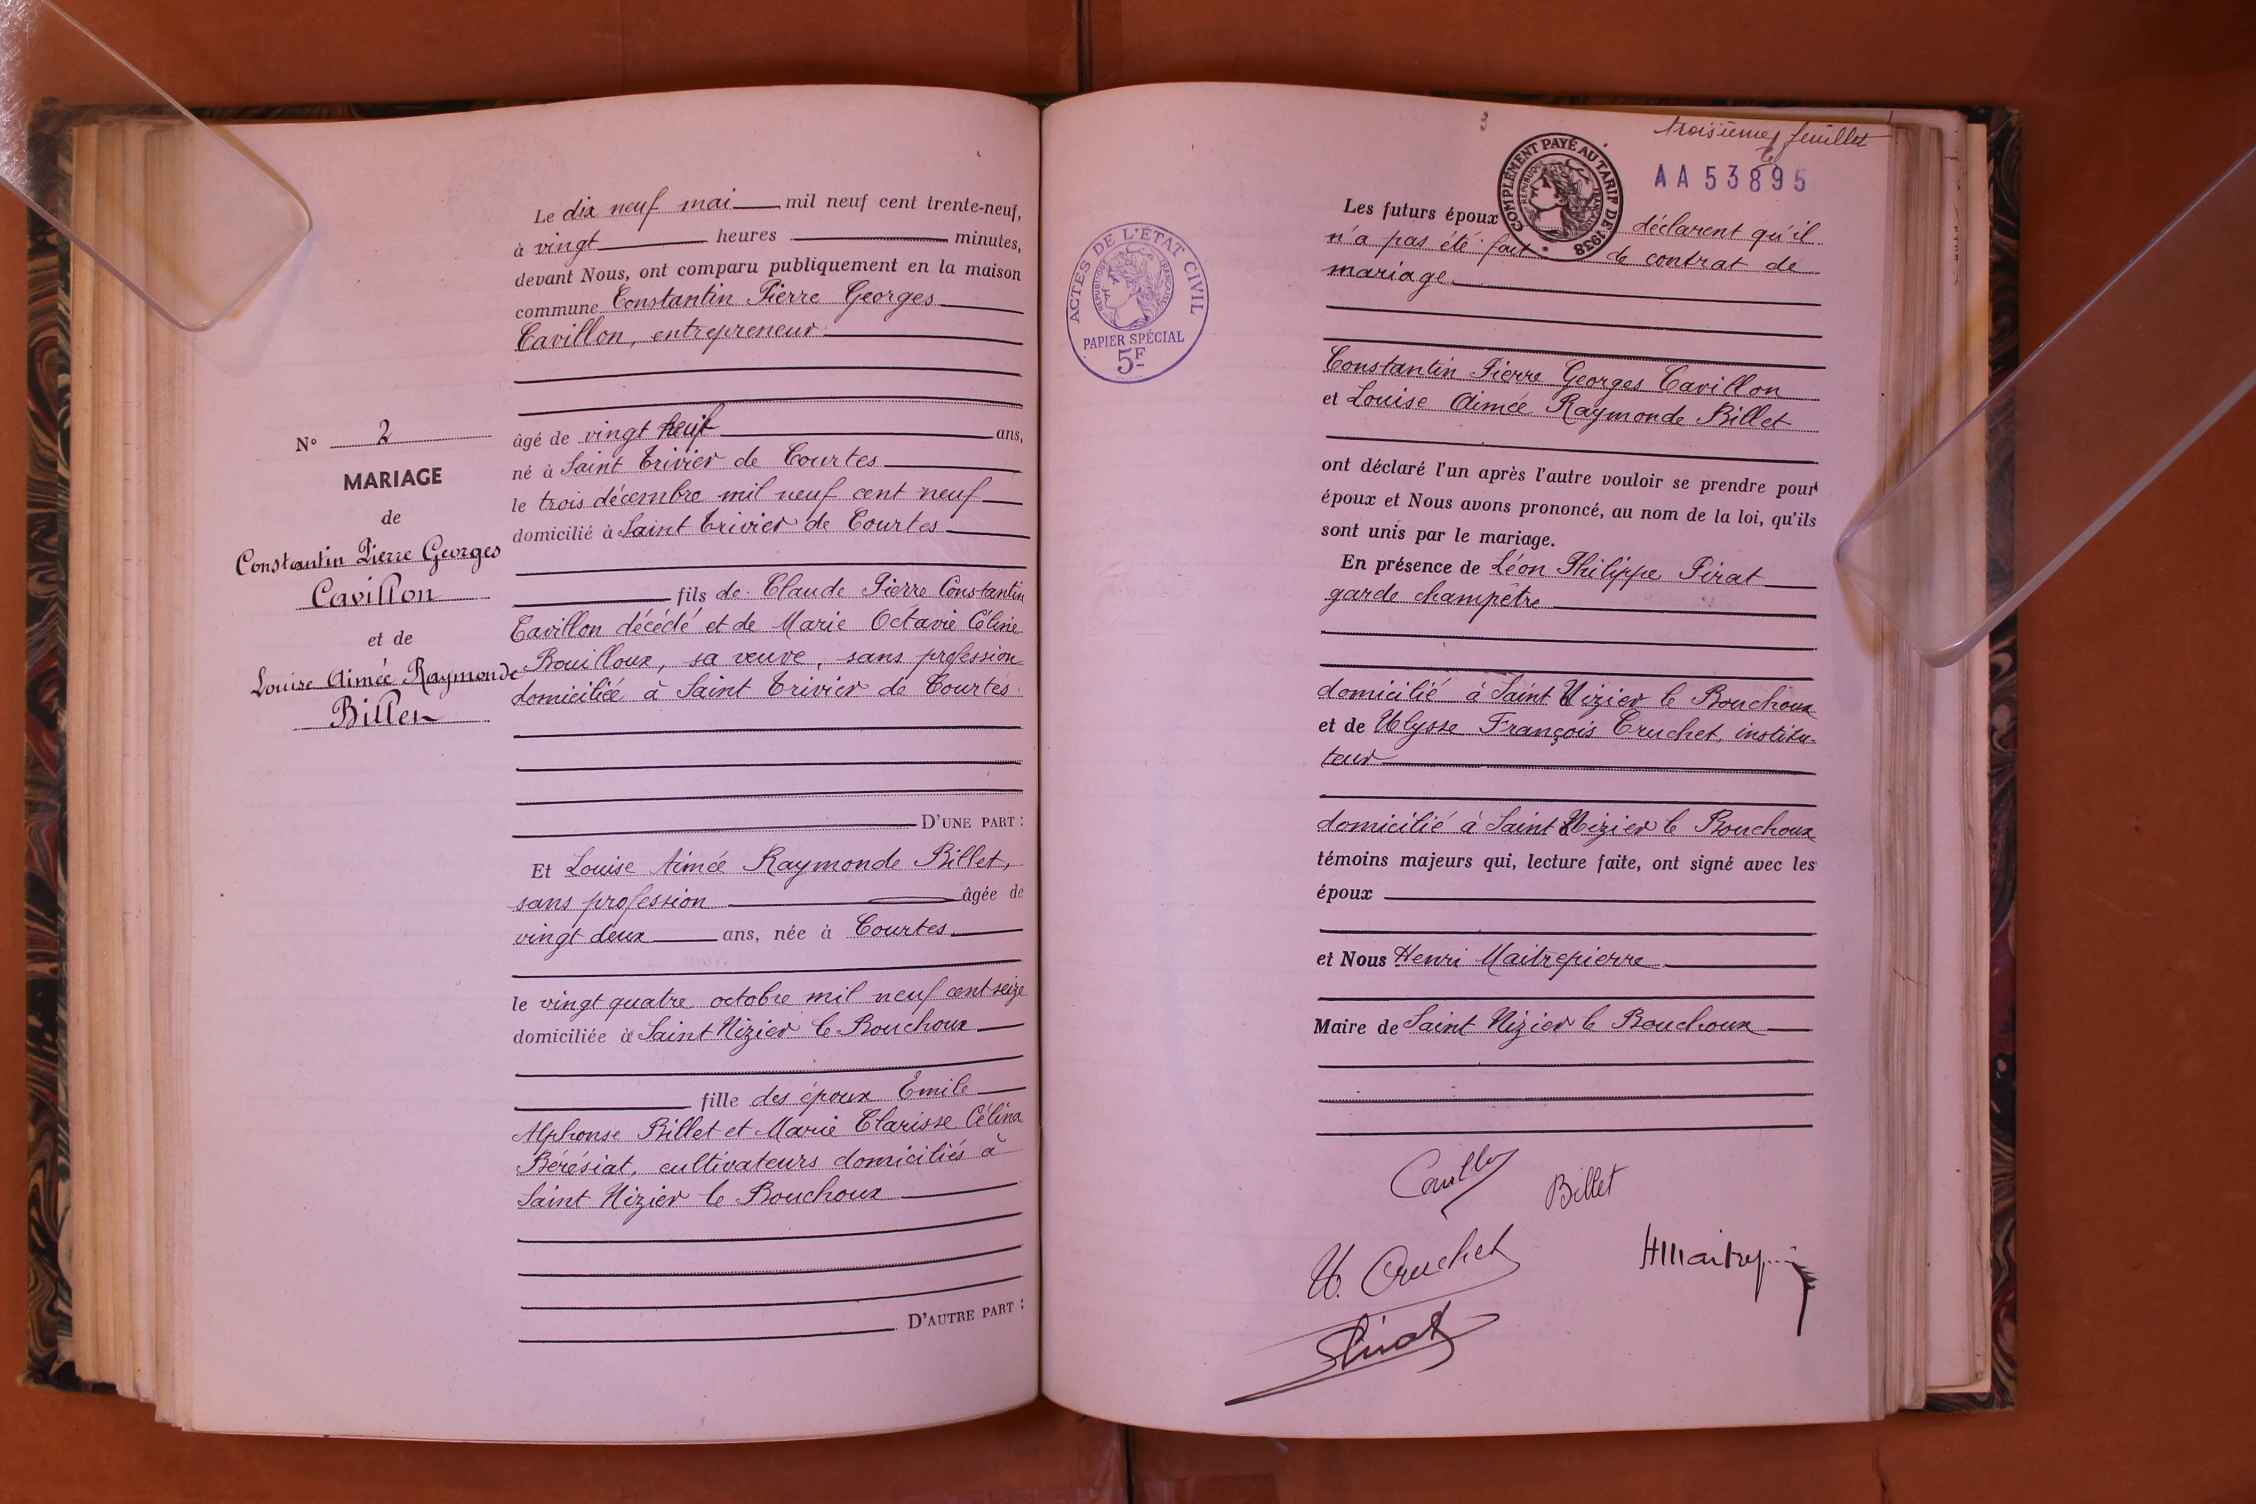 N° 2
MARIAGE
de
Constantin Pierre Georges
Cavillon
et de
Louise Aimée Raymonde
Billet
Le dix neuf mai mil neuf cent trente-neuf,
à vingt heures minutes,
devant Nous, ont comparu publiquement en la maison
commune Constantin Pierre Georges
Cavillon, entrepreneur
âgé de vingt neuf ans,
né à Saint Trivier de Courtes
le trois décembre mil neuf cent neuf
domicilié à Saint Trivier de Courtes
fils de Claude Pierre Constantin
Cavillon décédé et de Marie Octavie Céline
Bouilloux, sa veuve, sans profession
domiciliée à Saint Trivier de Courtes
D'UNE PART :
Et Louise Aimée Raymonde Billet,
sans profession âgée de
vingt deux ans, née à Courtes
le vingt quatre octobre mil neuf cent seize
domiciliée à Saint Nizier le Bouchoux
fille des époux Émile
Alphonse Billet et Marie Clarisse Célina
Bérésiat, cultivateurs domiciliés à
Saint Nizier le Bouchoux
D'AUTRE PART :
3
troisième feuillet
AA53895
COMPLÉMENT PAYÉ AU TARIF DE 1938
RÉPUBLIQUE FRANÇAISE
ACTES DE L'ÉTAT CIVIL
RÉPUBLIQUE FRANÇAISE
PAPIER SPÉCIAL
5F
Les futurs époux déclarent qu'il
n'a pas été fait de contrat de
mariage
Constantin Pierre Georges Cavillon
et Louise Aimée Raymonde Billet
ont déclaré l'un après l'autre vouloir se prendre pour
époux et Nous avons prononcé, au nom de la loi, qu'ils
sont unis par le mariage.
En présence de Léon Philippe Pirat
garde champêtre
domicilié à Saint Nizier le Bouchoux
et de Ulysse François Cruchet, institu-
teur
domicilié à Saint Nizier le Bouchoux
témoins majeurs qui, lecture faite, ont signé avec les
époux
et Nous Henri Maitrepierre
Maire de Saint Nizier le Bouchoux
Billet
U. Cruchet
Pirat